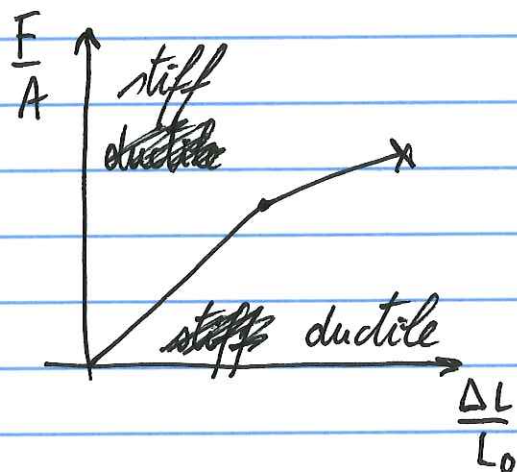 F
A
stiff
ductile
stiff ductile
ΔL
L₀